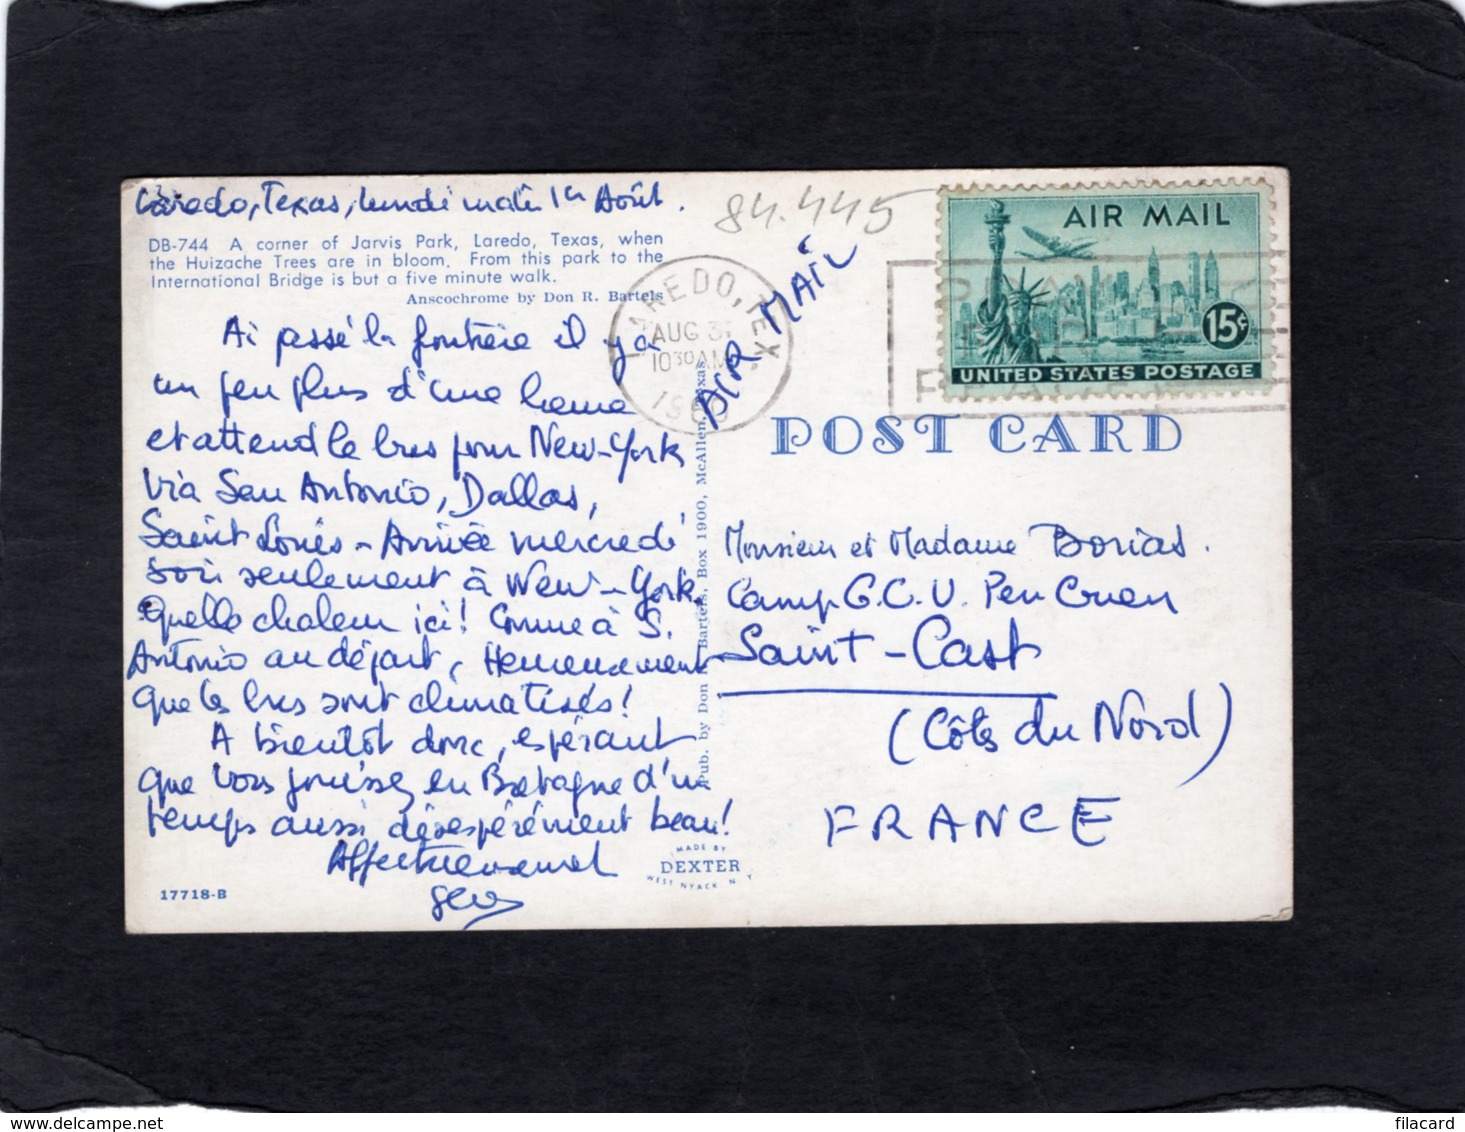 Laredo, Texas, lundi matin 1er Août.
DB-744 A corner of Jarvis Park, Laredo, Texas, when
the Huizache Trees are in bloom. From this park to the
International Bridge is but a five minute walk.
Anscochrome by Don R. Bartels
Ai passé la frontière il y a
un peu plus d'une heure
et attend le bus pour New-York
via San Antonio, Dallas,
Saint Louis - Arrivée mercredi
soir seulement à New-York.
Quelle chaleur ici! Comme à S.
Antonio au départ, Heureusement
que les bus sont climatisés!
A bientôt donc, espérant
que vous jouissez en Bretagne d'un
temps aussi désespérément beau!
Affectueusement
17718-B
MADE BY
DEXTER
WEST NYACK N.Y.
Pub. by Don Bartels, Box 1900, McAllen, Texas
84.445
AIR MAIL
LAREDO, TEX.
AUG
10 30 AM
AIR MAIL
15¢
UNITED STATES POSTAGE
POST CARD
Monsieur et Madame Borias.
Camp G.C.U. Pen Guen
Saint-Cast
(Côtes du Nord)
FRANCE
filacard